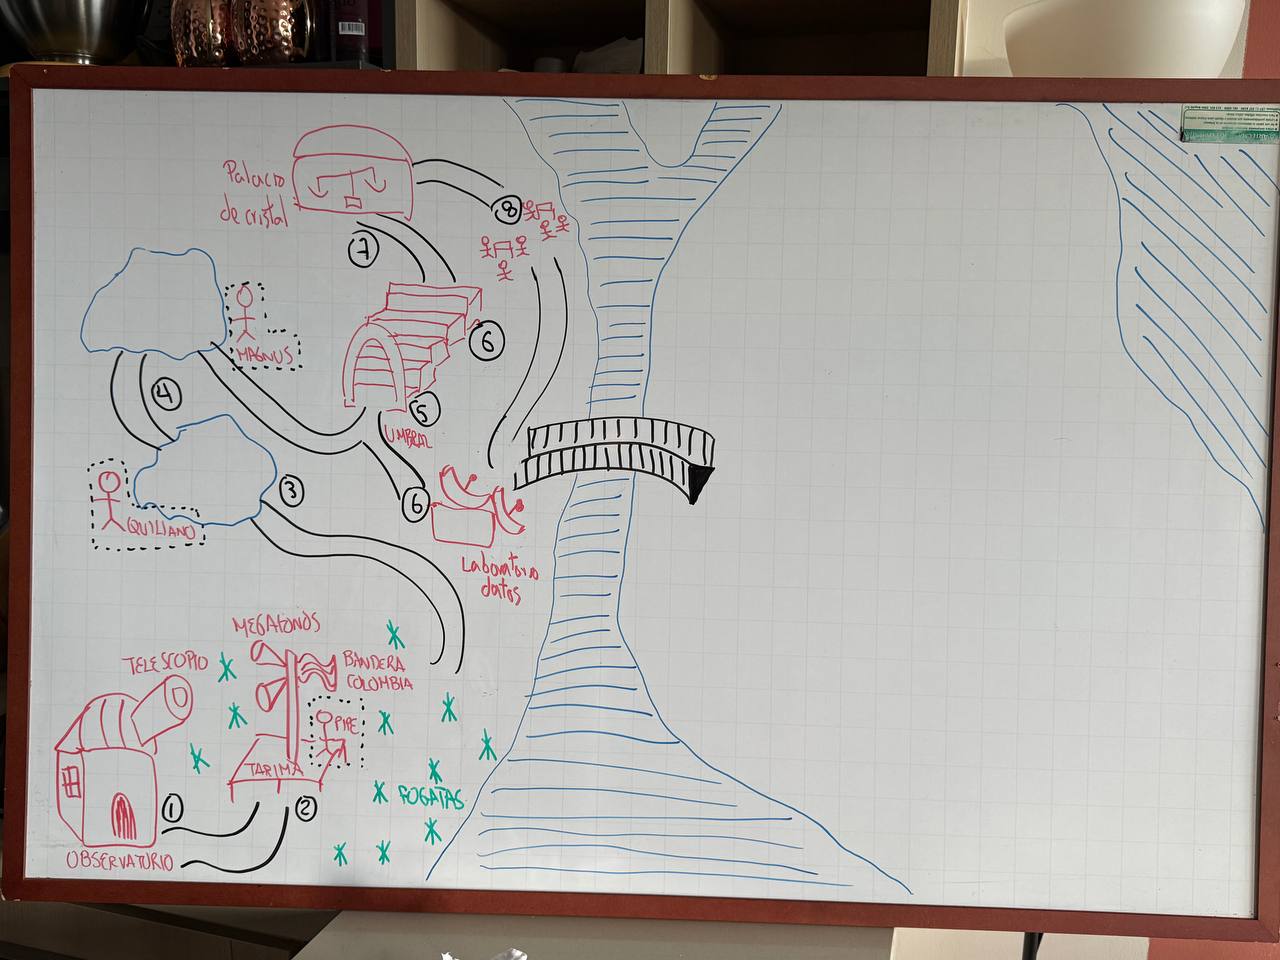 Palacio
de cristal
8
7
MAGNUS
6
4
5
UMBRAL
3
6
QUILIANO
Laboratorio
datos
MEGAFONOS
TELESCOPIO
BANDERA
COLOMBIA
PIPE
TARIMA
FOGATAS
1
2
OBSERVATORIO